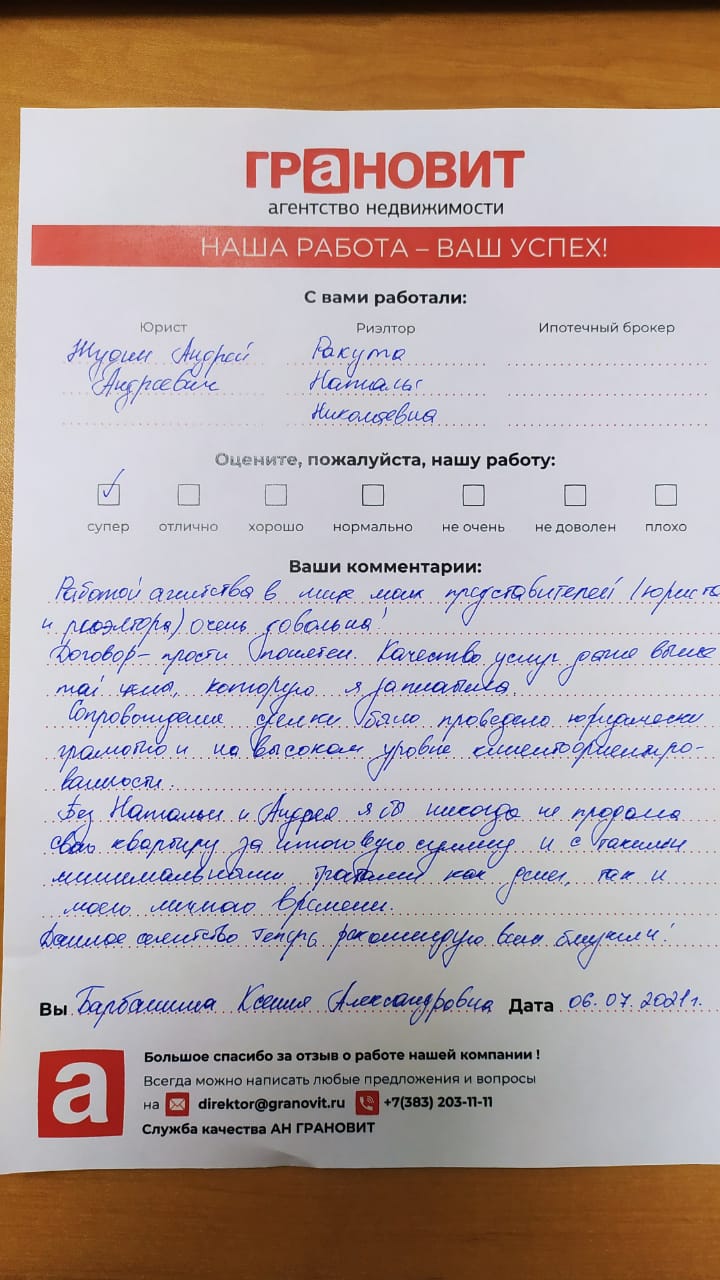 ГРаНОВИТ
агентство недвижимости
НАША РАБОТА – ВАШ УСПЕХ!
С вами работали:
Юрист Риэлтор Ипотечный брокер
Андрей Ракута
Андреевич Наталья
Николаевна
Оцените, пожалуйста, нашу работу:
супер отлично хорошо нормально не очень не доволен плохо
Ваши комментарии:
Работой агентства в лице моих представителей (юриста
и риэлтора) очень довольна!
Договор – прост и понятен. Качество услуг даже выше
той цены, которую я заплатила.
Сопровождение сделки было проведено юридически
грамотно и на высоком уровне клиентоориентиро-
ванности.
Без Натальи и Андрея я бы никогда не продала
свою квартиру за итоговую сумму и с такими
минимальными тратами как денег, так и
моего личного времени.
Данное агентство теперь рекомендую всем близким!
Вы Ксения Александровна Дата 06.07.2021г.
а
Большое спасибо за отзыв о работе нашей компании !
Всегда можно написать любые предложения и вопросы
на direktor@granovit.ru +7(383) 203-11-11
Служба качества АН ГРАНОВИТ